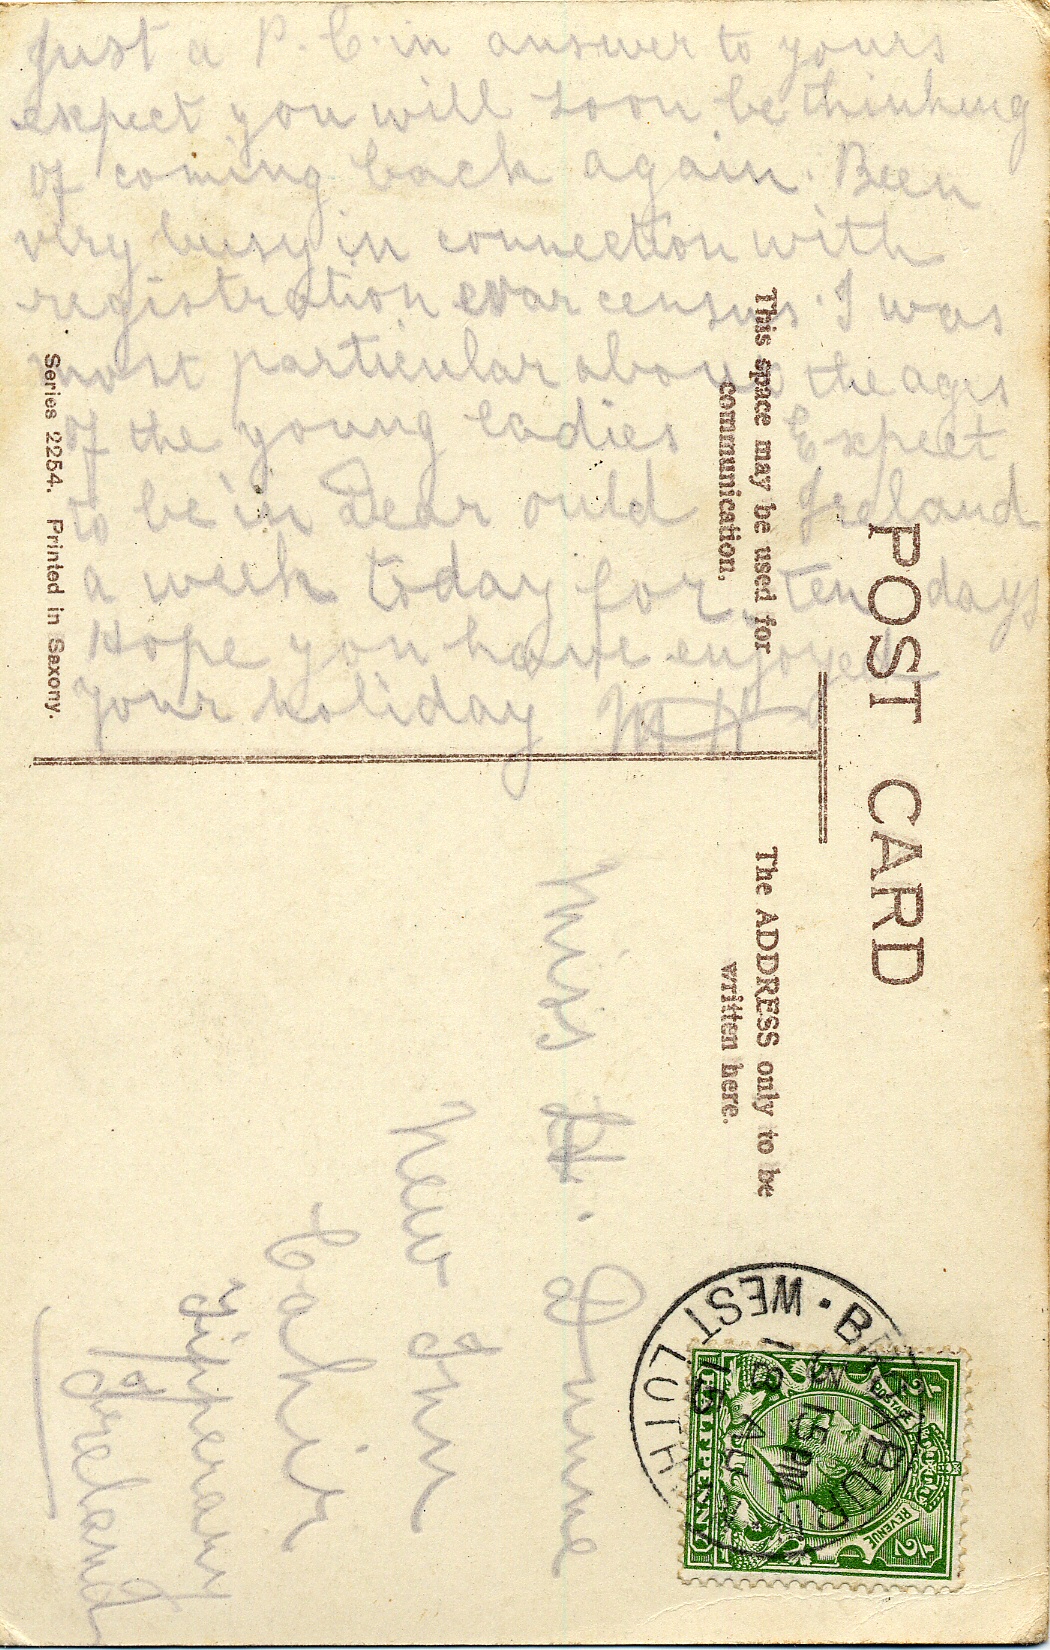 Just a P.C. in answer to yours
expect you will soon be thinking
of coming back again. Been
very busy in connection with
registration war census. I was
most particular about the ages
of the young ladies Expect
to be in Dear ould Ireland
a week today for ten days
Hope you have enjoyed
your holiday MH
POST CARD
This space may be used for
communication.
The ADDRESS only to be
written here.
Series 2254. Printed in Saxony.
Miss H. Dunne
New Inn
Cahir
Tipperary
Ireland
WEST LOTH
5 15 PM
18 AU
15
POSTAGE
REVENUE
HALFPENNY